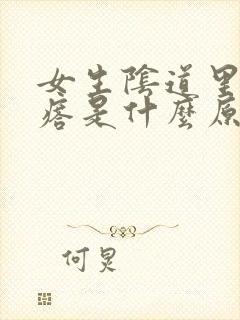 女生陰道里
痞是什麼原
何炅